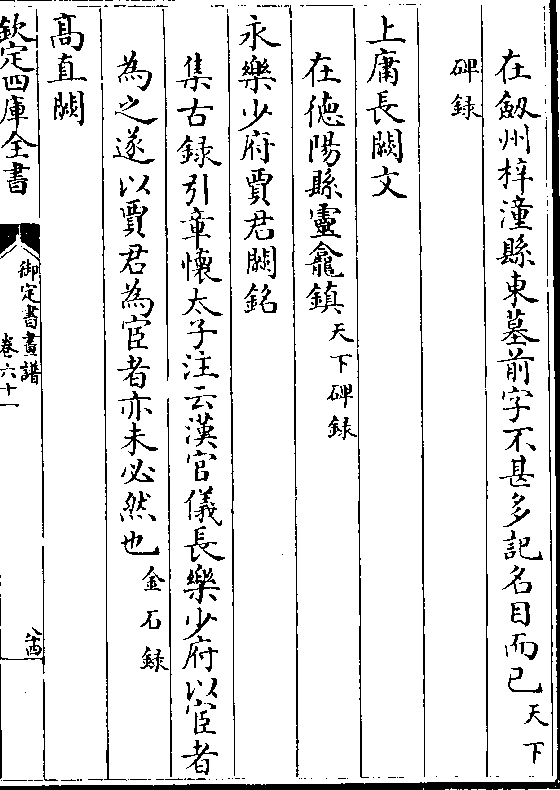 在劔州梓潼縣東墓前字不甚多記名目而已天下
碑録
上庸長闕文
在德陽縣靈龕鎮天下碑録
永樂少府賈君闕銘
集古録引章懷太子注云漢官儀長樂少府以宦者
為之遂以賈君為宦者亦未必然也金石録
髙直闕
欽定四庫全書
御定書畫譜
卷六十一